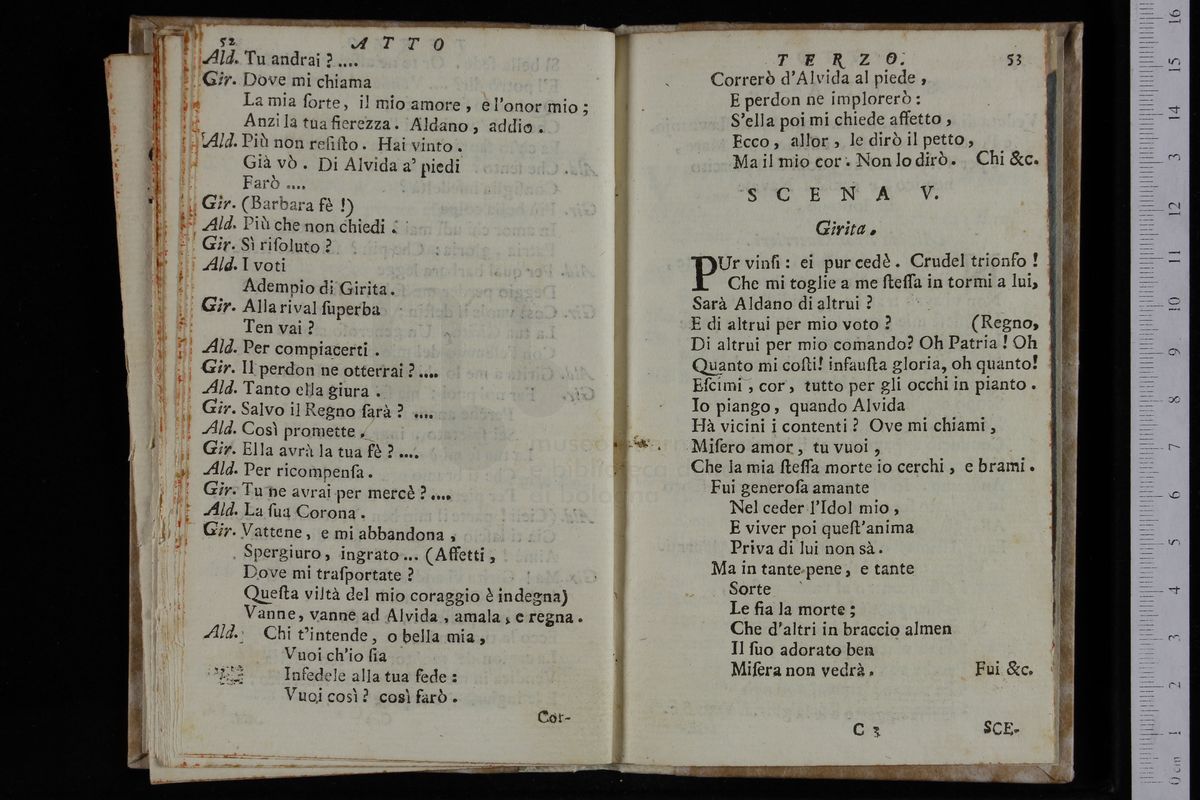 52 ATTO
Ald. Tu andrai ? ....
Gir. Dove mi chiama
La mia ſorte, il mio amore, e l'onor mio ;
Anzi la tua fierezza. Aldano, addio.
Ald. Più non reſiſto. Hai vinto.
Già vò. Di Alvida a' piedi
Farò ....
Gir. (Barbara fè !)
Ald. Più che non chiedi.
Gir. Sì riſoluto ?
Ald. I voti
Adempio di Girita.
Gir. Alla rival ſuperba
Ten vai ?
Ald. Per compiacerti.
Gir. Il perdon ne otterrai ? ....
Ald. Tanto ella giura.
Gir. Salvo il Regno ſarà ? ....
Ald. Così promette.
Gir. Ella avrà la tua fè ? ....
Ald. Per ricompenſa.
Gir. Tu ne avrai per mercè ? ....
Ald. La ſua Corona.
Gir. Vattene, e mi abbandona,
Spergiuro, ingrato ... (Affetti,
Dove mi traſportate ?
Queſta viltà del mio coraggio è indegna)
Vanne, vanne ad Alvida, amala, e regna.
Ald. Chi t'intende, o bella mia,
Vuoi ch'io ſia
Infedele alla tua fede :
Vuoi così ? così farò.
Cor-
TERZO. 53
Correrò d'Alvida al piede,
E perdon ne implorerò :
S'ella poi mi chiede affetto,
Ecco, allor, le dirò il petto,
Ma il mio cor. Non lo dirò. Chi &c.
SCENA V.
Girita.
PUr vinſi : ei pur cedè. Crudel trionfo !
Che mi toglie a me ſteſſa in tormi a lui,
Sarà Aldano di altrui ?
E di altrui per mio voto ? (Regno,
Di altrui per mio comando? Oh Patria ! Oh
Quanto mi coſti! infauſta gloria, oh quanto!
Eſcimi, cor, tutto per gli occhi in pianto.
Io piango, quando Alvida
Hà vicini i contenti ? Ove mi chiami,
Miſero amor, tu vuoi,
Che la mia ſteſſa morte io cerchi, e brami.
Fui generoſa amante
Nel ceder l'Idol mio,
E viver poi queſt'anima
Priva di lui non sà.
Ma in tante pene, e tante
Sorte
Le ſia la morte ;
Che d'altri in braccio almen
Il ſuo adorato ben
Miſera non vedrà. Fui &c.
C 3 SCE-